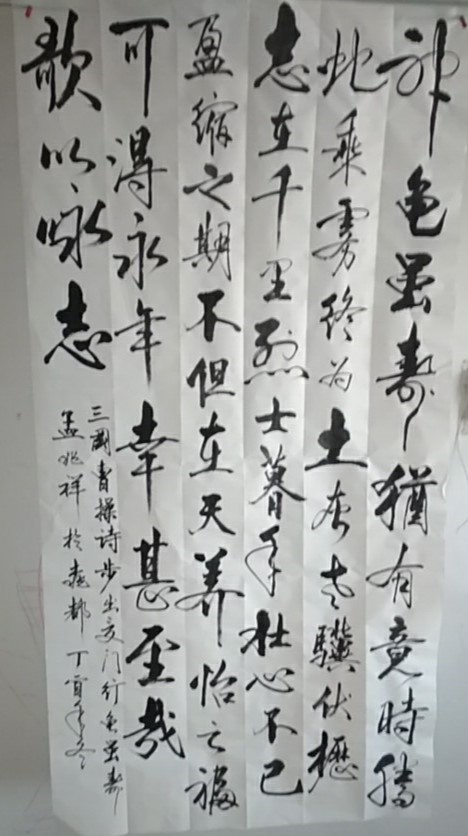 神龟虽寿猶有竟時腾
蛇乘雾终为土灰老驥伏櫪
志在千里烈士暮年壮心不已
盈缩之期不但在天养怡之福
可得永年幸甚至哉
歌以咏志
三國曹操诗步出夏门行龟虽寿
孟兆祥於都丁酉年冬